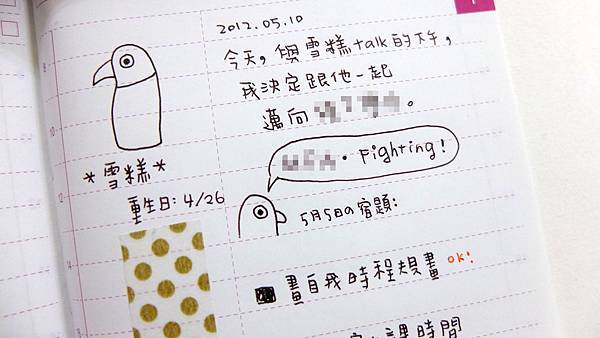 2012.05.10
今天,與雪糕talk的下午,
我決定跟他一起
邁向。
*雪糕*
重生日: 4/26
Fighting!
5月5日の宿題:
畫自我時程規畫 ok!
課時間